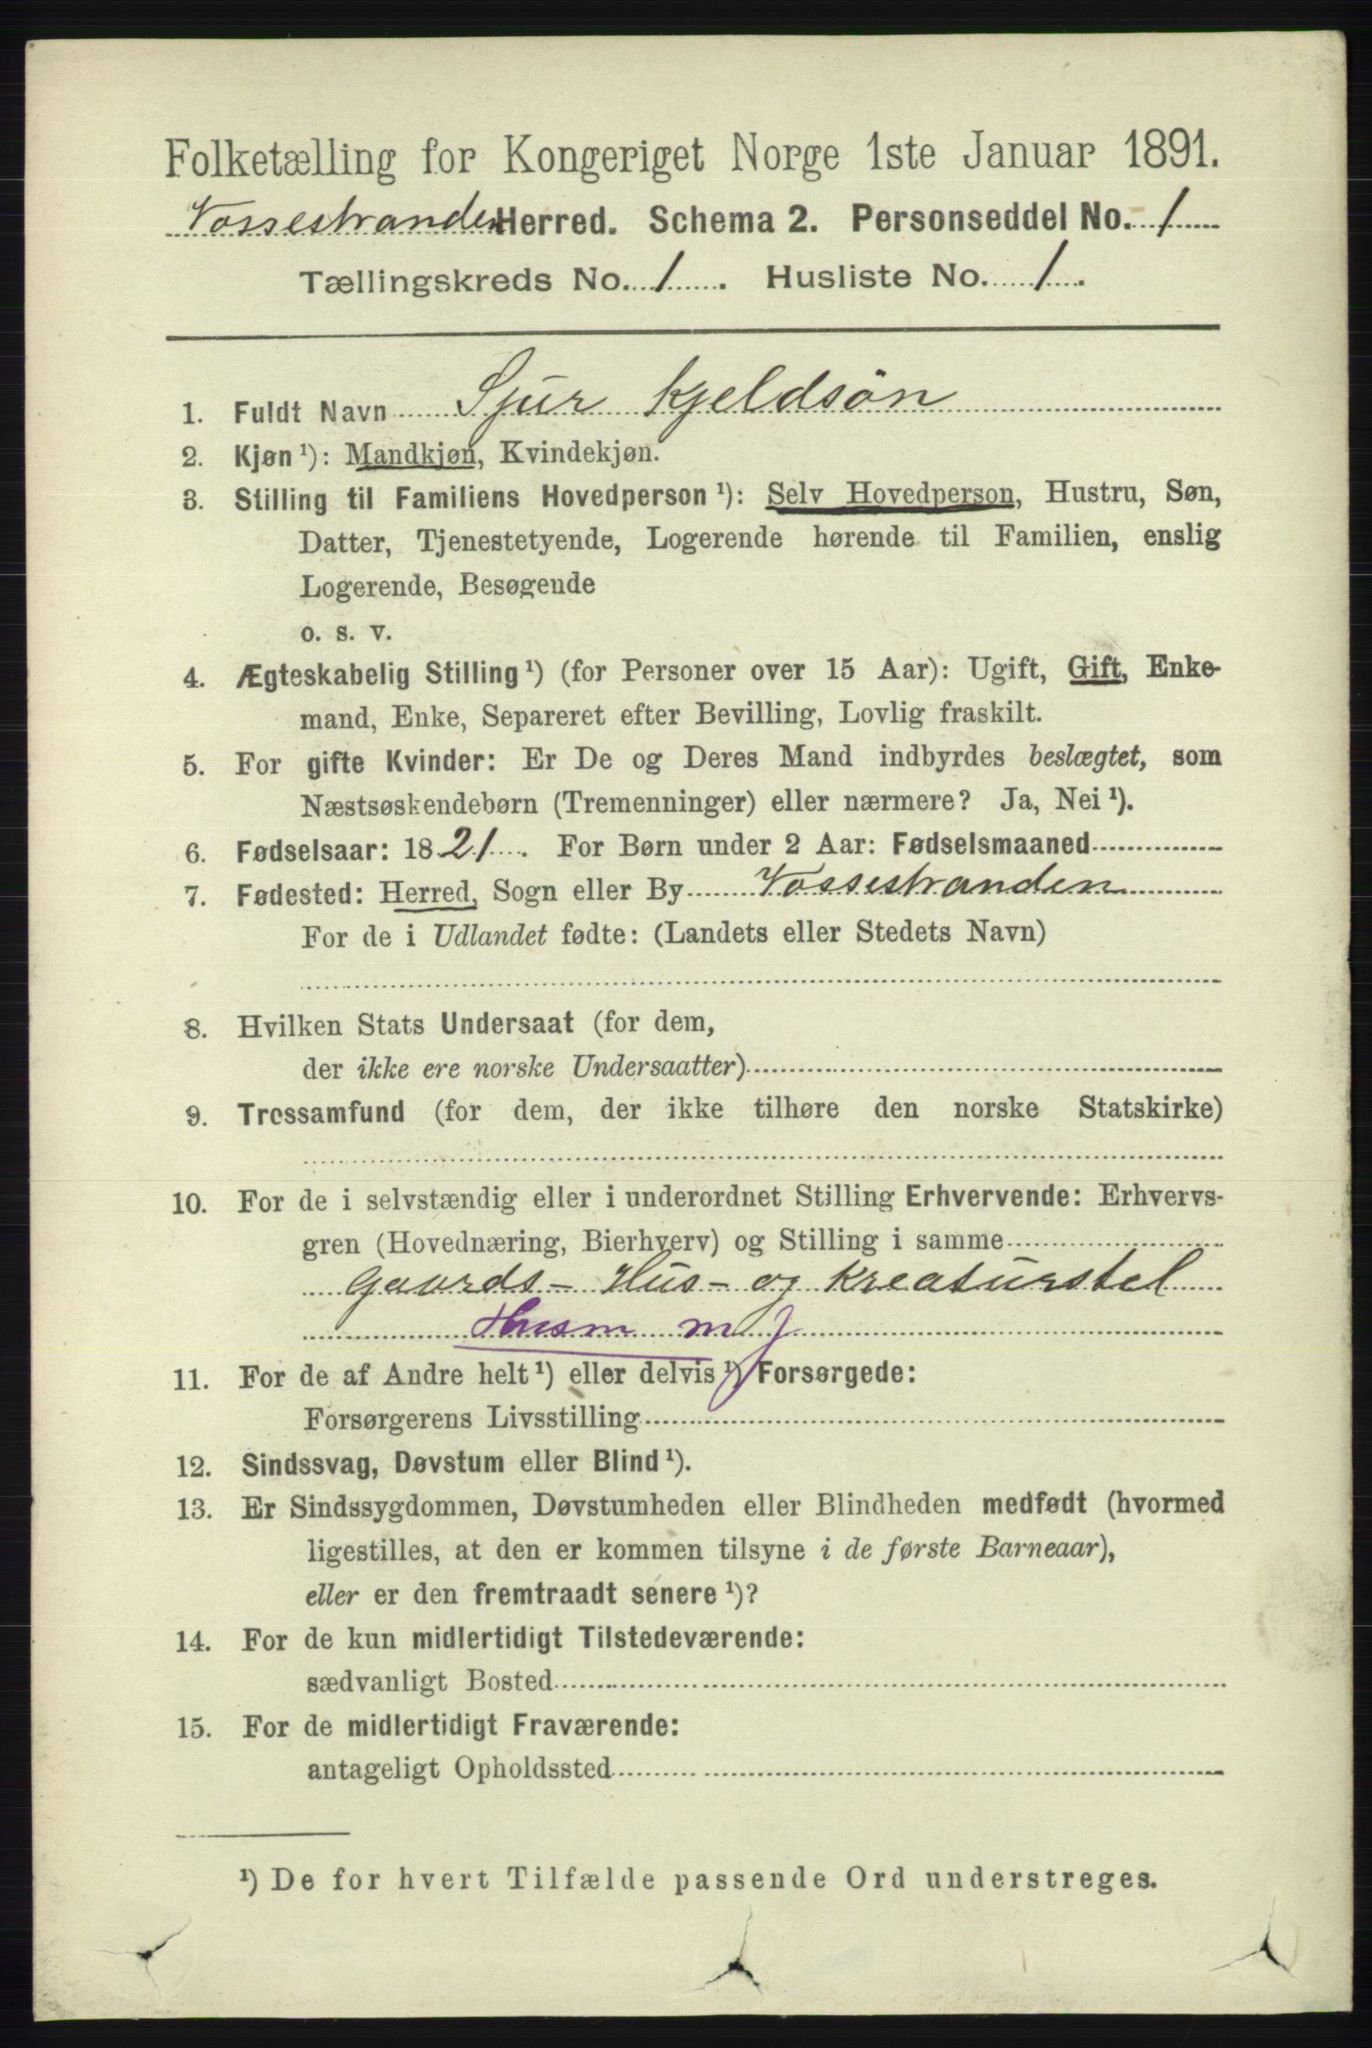 Folketælling for Kongeriget Norge 1ste Januar 1891.
Vossestranden Herred. Schema 2. Personseddel No. 1
Tællingskreds No. 1. Husliste No. 1.
1. Fuldt Navn Sjur Kjeldsön
2. Kjøn ¹): Mandkjøn, Kvindekjøn.
3. Stilling til Familiens Hovedperson ¹): Selv Hovedperson, Hustru, Søn,
Datter, Tjenestetyende, Logerende hørende til Familien, enslig
Logerende, Besøgende
o. s. v.
4. Ægteskabelig Stilling ¹) (for Personer over 15 Aar): Ugift, Gift, Enke-
mand, Enke, Separeret efter Bevilling, Lovlig fraskilt.
5. For gifte Kvinder: Er De og Deres Mand indbyrdes beslægtet, som
Næstsøskendebørn (Tremenninger) eller nærmere? Ja, Nei ¹).
6. Fødselsaar: 1821. For Børn under 2 Aar: Fødselsmaaned
7. Fødested: Herred, Sogn eller By Vossestranden
For de i Udlandet fødte: (Landets eller Stedets Navn)
8. Hvilken Stats Undersaat (for dem,
der ikke ere norske Undersaatter)
9. Trossamfund (for dem, der ikke tilhøre den norske Statskirke)
10. For de i selvstændig eller i underordnet Stilling Erhvervende: Erhvervs-
gren (Hovednæring, Bierhverv) og Stilling i samme
Gaards- Hus- og Kreaturstel
Husm m j
11. For de af Andre helt ¹) eller delvis ¹) Forsørgede:
Forsørgerens Livsstilling
12. Sindssvag, Døvstum eller Blind ¹).
13. Er Sindssygdommen, Døvstumheden eller Blindheden medfødt (hvormed
ligestilles, at den er kommen tilsyne i de første Barneaar),
eller er den fremtraadt senere ¹)?
14. For de kun midlertidigt Tilstedeværende:
sædvanligt Bosted
15. For de midlertidigt Fraværende:
antageligt Opholdssted
¹) De for hvert Tilfælde passende Ord understreges.